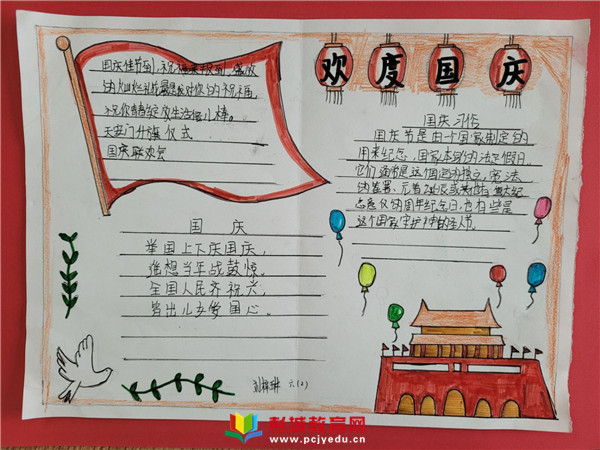 欢度国庆
国庆佳节到,祝福来报到,盛放
的灿烂礼花是我对你的祝福,
祝你青春绽放生活倍儿棒。
天安门升旗仪式
国庆联欢会
国庆习俗
国庆节是由一个国家制定的
用来纪念,国家本身的法定假日。
它们通常是这个国家的独立,宪法
的签署,元首
这个国家守护神的圣人节。
国庆
举国上下庆国庆,
难想当年战鼓惊。
全国人民齐祝兴,
皆出儿女党国心。
六(2)
彭城教育网
www.pcjyedu.cn